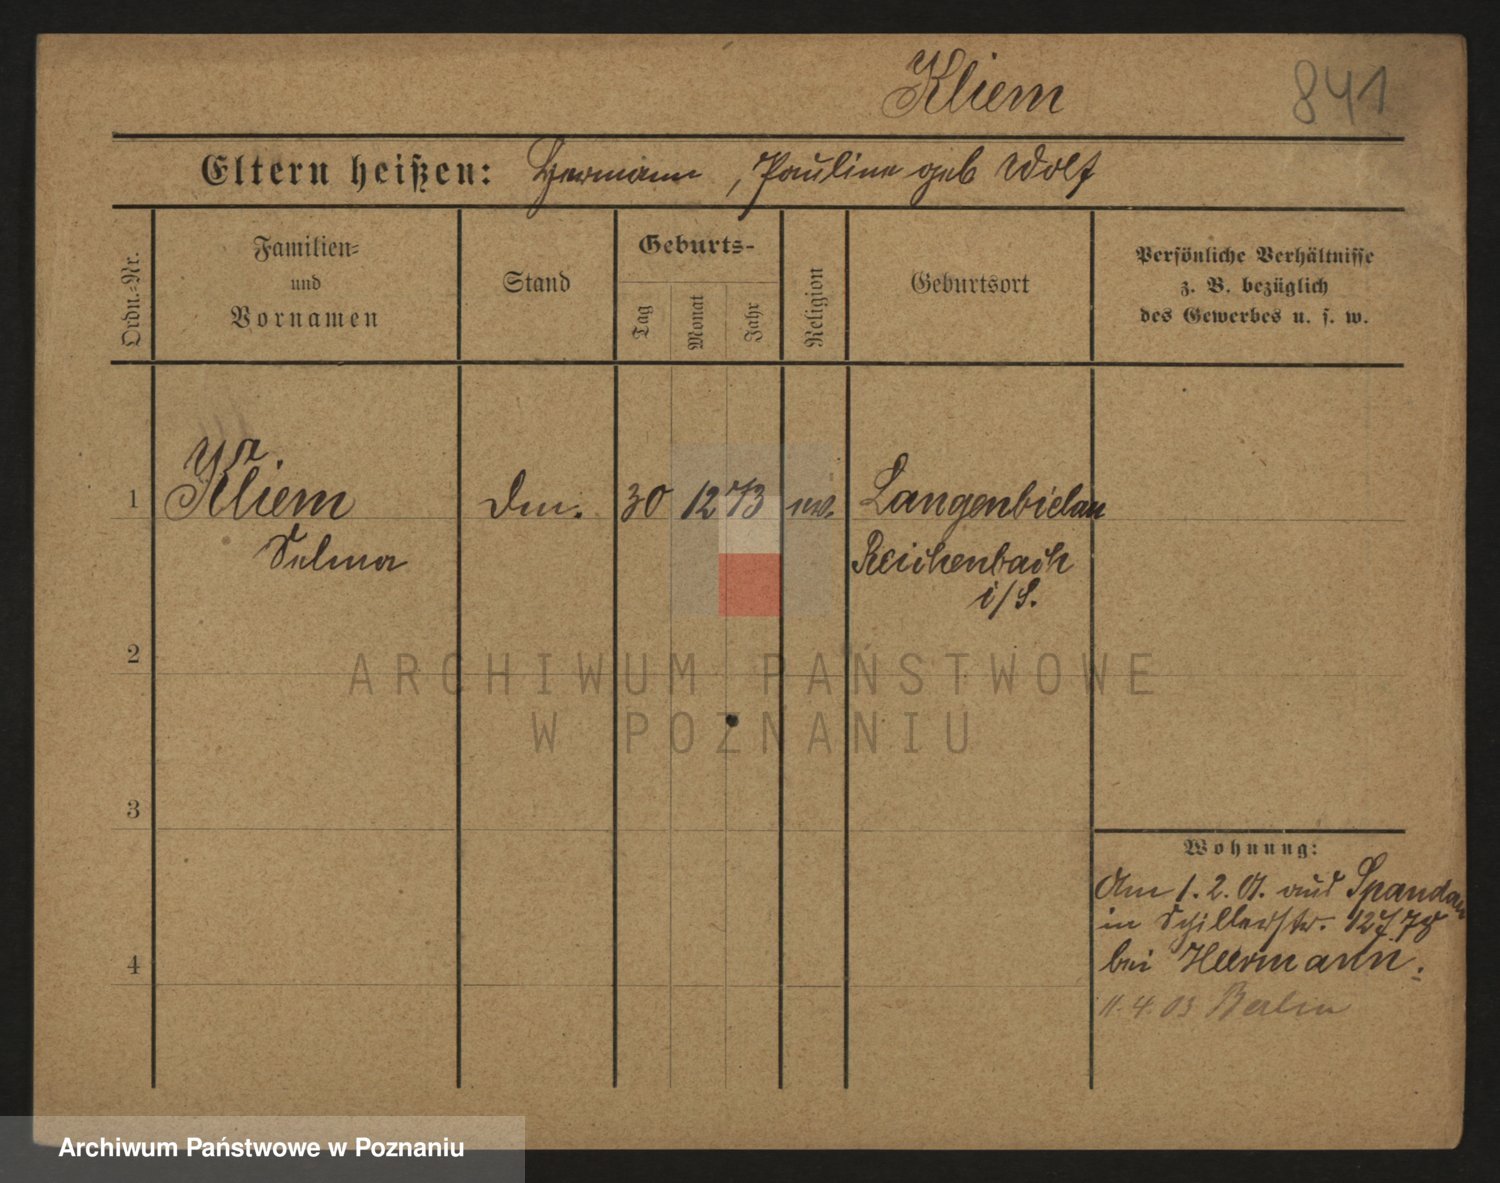 Kliem
841
Eltern heißen: Hermann, Pauline geb Wolf
Ordn.-Nr.
Familien-
und
Vornamen
Stand
Geburts-
Tag
Monat
Jahr
Religion
Geburtsort
Persönliche Verhältnisse
z. B. bezüglich
des Gewerbes u. s. w.
1
Kliem
30 12 73
ev.
Langenbielau
Selma
Reichenbach
i/S.
2
ARCHIWUM PAŃSTWOWE
W POZNANIU
3
Wohnung:
Am 1. 2. 01. aus Spandau
in Schillerstr.
4
bei Heermann.
11. 4. 03 Berlin
Archiwum Państwowe w Poznaniu